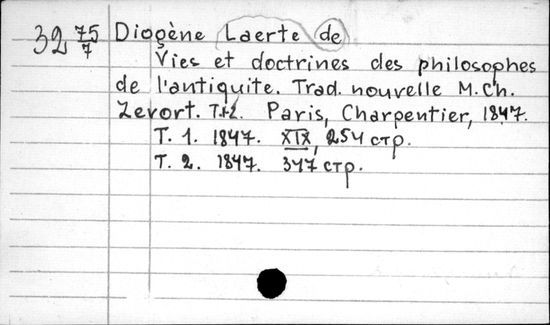 32 75/7 Diogène Laerte de
Vies et doctrines des philosophes
de l'antiquite. Trad. nouvelle M. Ch.
Zevort. T.1-2. Paris, Charpentier, 1847.
T. 1. 1847. XIX, 254 стр.
T. 2. 1847. 347 стр.